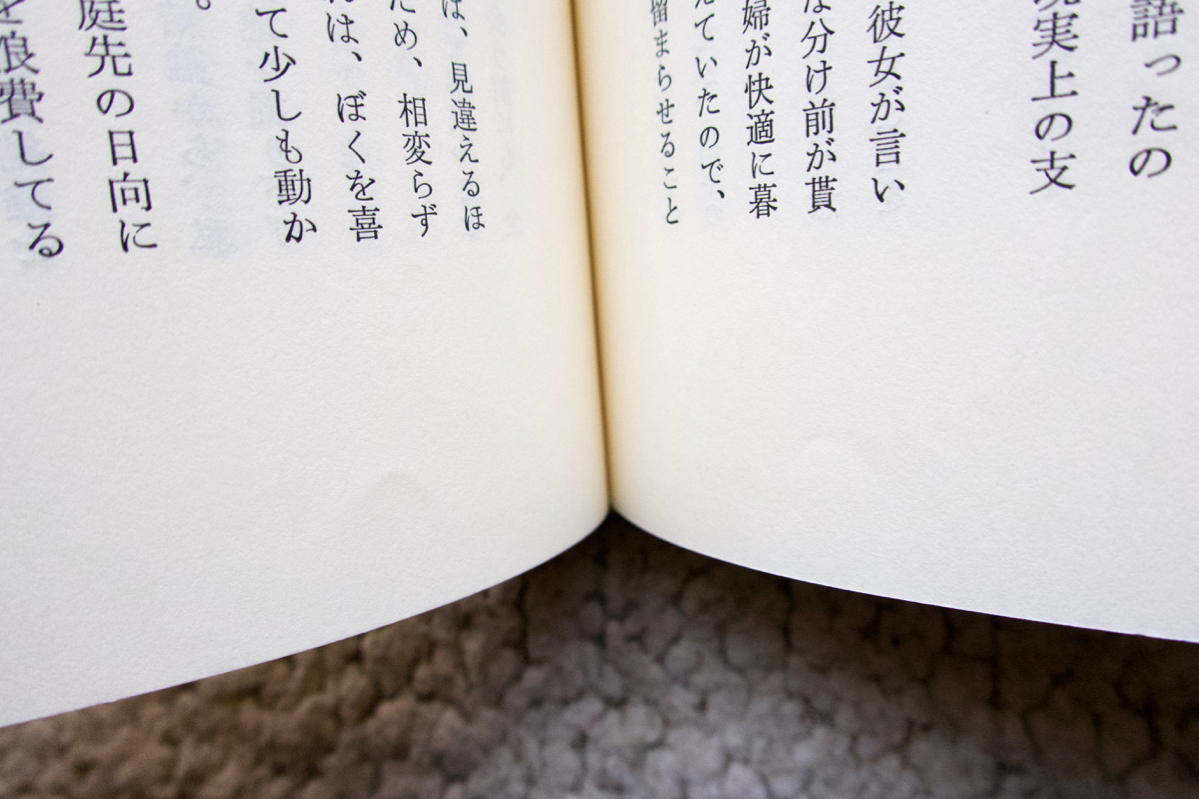 語ったの
現実上の支
彼女が言い
な分け前が貰
婦が快適に暮
えていたので、
留まらせること
は、見違えるほ
ため、相変らず
んは、ぼくを喜
て少しも動か
。
庭先の日向に
を浪費してる